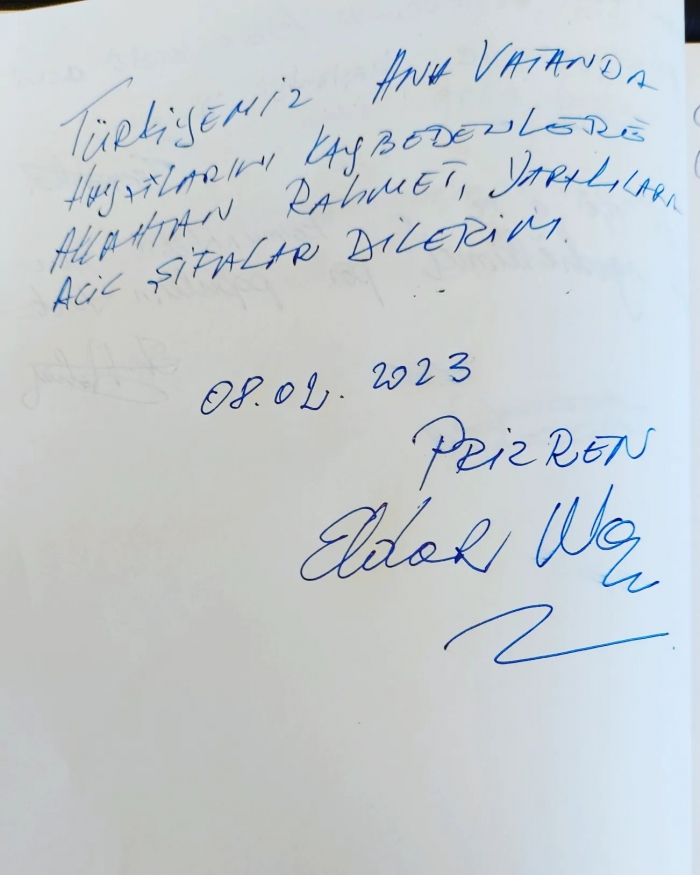 TÜRKiYEMiZ ANA VATANDA
HAYATLARINI KAYBEDENLERE
ALLAHTAN RAHMET, YARALILARA
ACİL ŞİFALAR DİLERİM.
08.02. 2023
PRİZREN